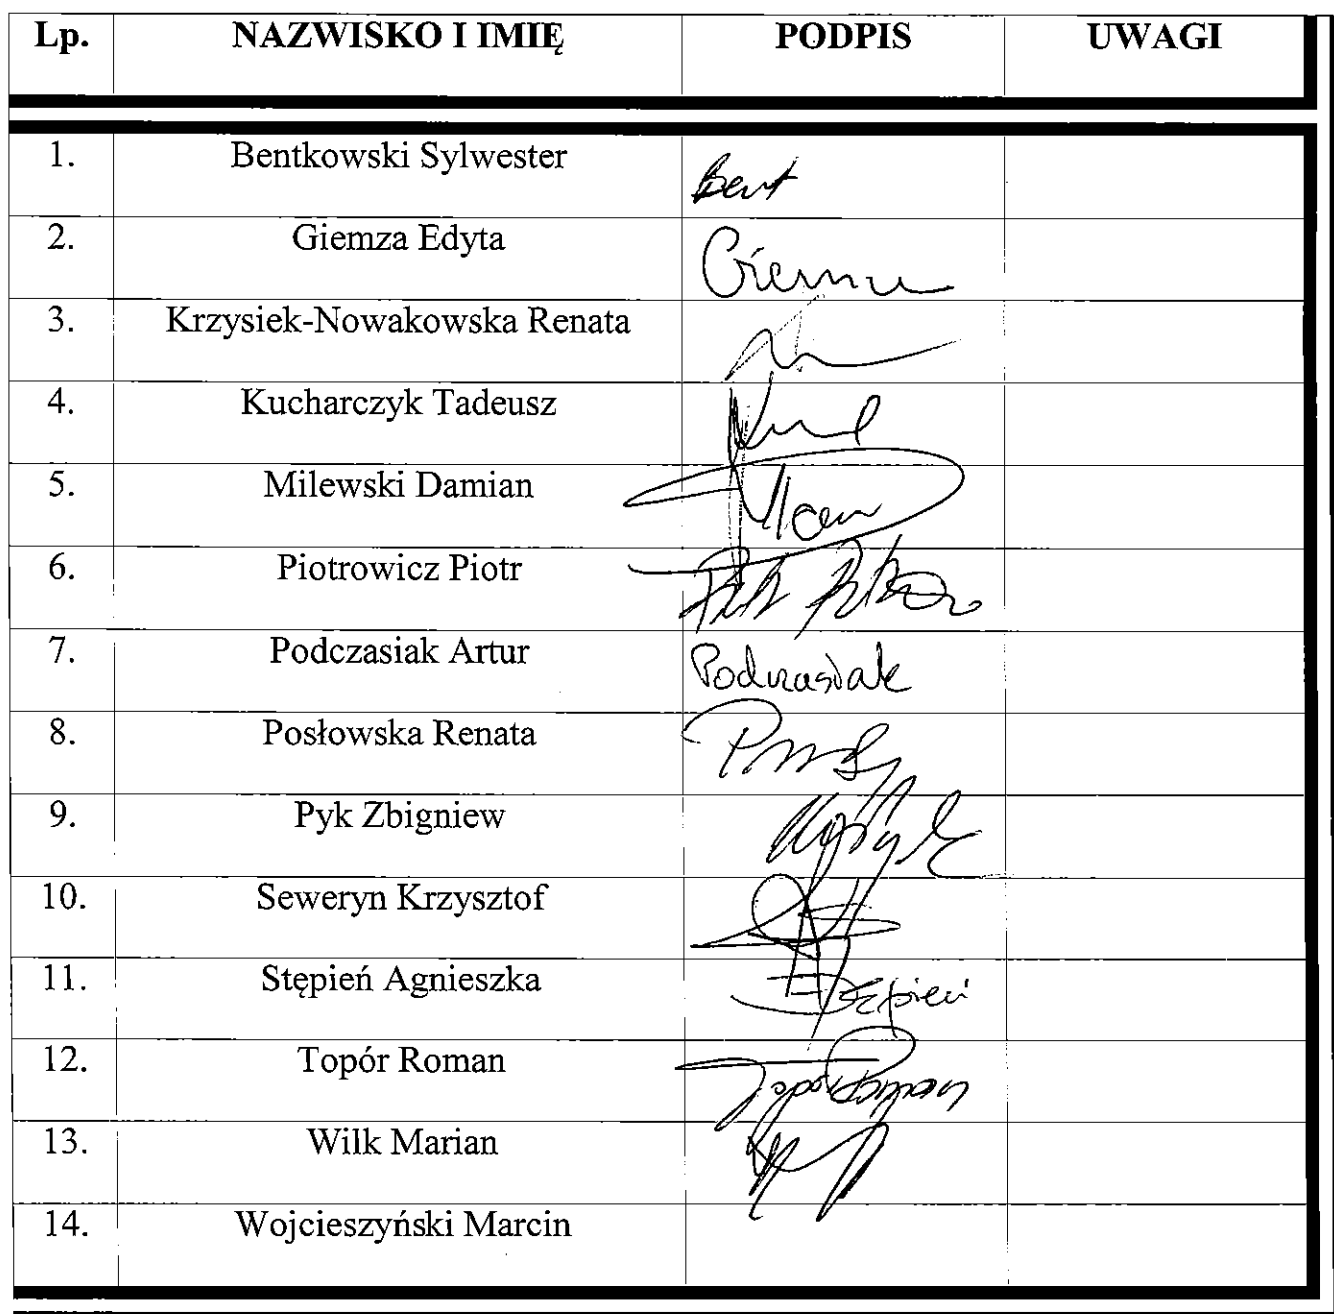 Lp. NAZWISKO I IMIĘ PODPIS UWAGI
1. Bentkowski Sylwester Bent
2. Giemza Edyta
3. Krzysiek-Nowakowska Renata
4. Kucharczyk Tadeusz
5. Milewski Damian
6. Piotrowicz Piotr
7. Podczasiak Artur Podczasiak
8. Posłowska Renata
9. Pyk Zbigniew
10. Seweryn Krzysztof
11. Stępień Agnieszka Stępień
12. Topór Roman
13. Wilk Marian
14. Wojcieszyński Marcin